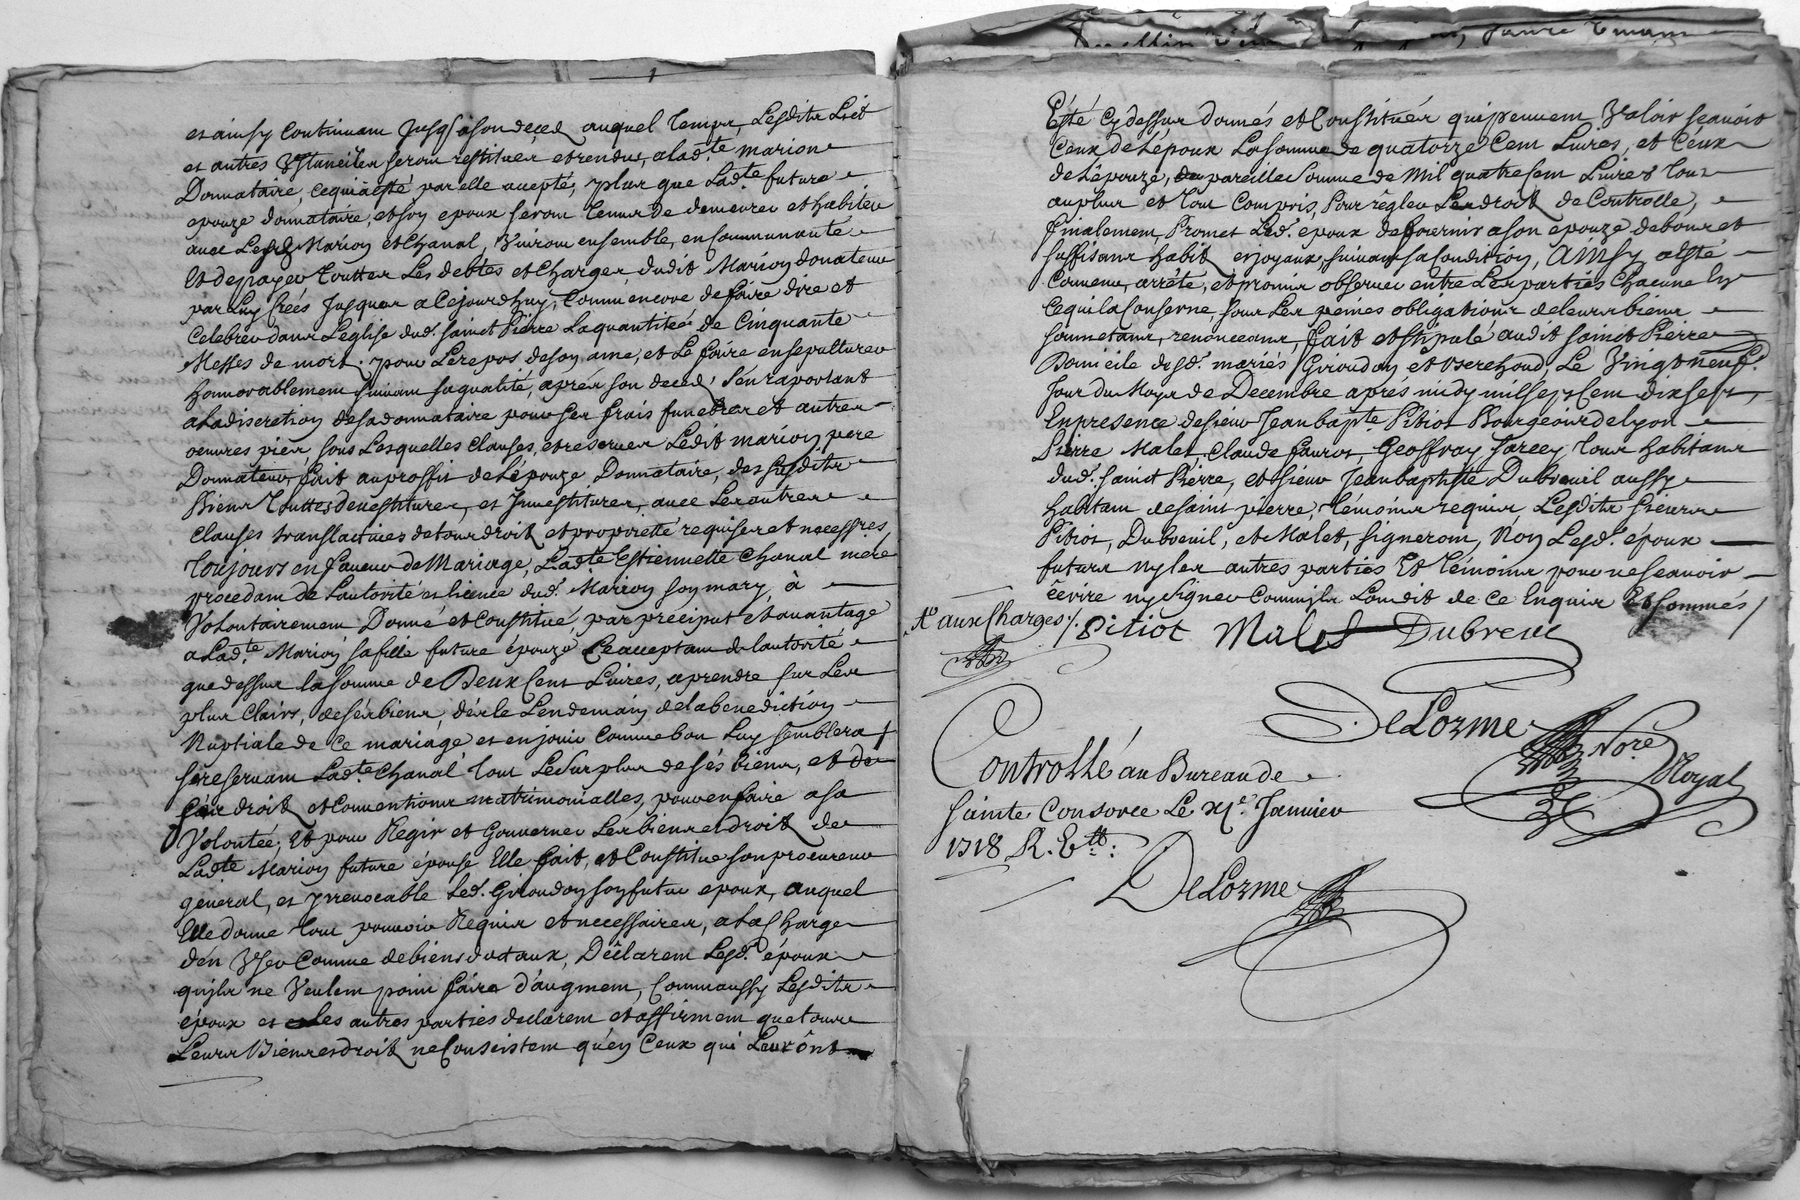 et ainsy Continuant Jusq'a son deced auquel temps, Lesdits Lict
et autres Vstanciles seront restitués et rendus, a lad.te marion
Donnataire, ce qui a esté par elle accepté, plus que Lad.te future
epouze donnataire, et son epoux seront tenus de demeurer et habiter
avec Lesd Marion et Chanal, Vivront ensemble, en Communauté
Et de payer touttes Les debtes et Charges dudit Marion donateur
par Luy Créés Jusques a Cejourdhuy, Comme encore de faire dire et
Celebrer dans L'eglise dud. sainct Pierre La quantitée de Cinquante
Messes de mort, pour Le repos de son ame, et Le faire ensepulturer
honnorablement suivant sa qualité, aprés son deced, s'en raportant
a la discretion de sa donnataire pour ses frais funebres et autres
oeuvres pies, sous Lesquelles Clauses, et reserves Ledit marion pere
Donnateur, fait au proffit de L'épouze Donnataire, des susdits
Biens touttes devestitures, et Jnvestitures, avec Les autres
Clauses translatives de tous droit et proprietté requises et necessres
Toujours en faveur de Mariage, Lad.te Estiennette Chanal mere
procedant de L'autorité et licence dud. Marion son mary, à
Volontairement Donné et Constitué, par preciput et avantage
a Lad.te Marion sa fille future épouze Ce acceptant de l'autorité
que dessus la somme de Deux Cent Livres, a prendre sur Les
plus Clairs, de sés biens, dés le Lendemain de la benediction
Nuptiale de Ce mariage et en jouir Comme bon Luy semblera +
se reservant Lad.te Chanal tout Le surplus de sés biens, et de
sés droit et Conventions matrimonialles, pour en faire a sa
Volontée, Et pour Regir et Gouverner Les biens et droit de
Lad.te Marion future épouse Elle fait, et Constitue son procureur
general, et yrrevocable Led. Giroudon son futur epoux, auquel
Elle donne tout pouvoir Requis et necessaires, a la Charge
d'én Vser Comme de biens dotaux, Déclarent Lesd. époux
quijls ne Veulent point faire d'áugment, Comm'aussy Lesdits
époux et Les autres parties declarent et affirment que tous
Leurs Biens et droit ne Consistent qu'en Ceux qui Leur ônt
Ésté Cy dessus donnés et Constitués qui peuvent Valoir scavoir
Ceux de L'époux La somme de quatorze Cent Livres, et Céux
de L'épouze, pareille somme de Mil quatre Cent Livres tout
au plus et tout Compris, Pour régler Les droit de Controlle,
finalement, Promet Led. epoux de fournir a son epouze de bons et
suffisans habit et joyaux, suivant sa Condition, Ainsy a esté
Convenu, arrété, et promis observer entre Les parties Chacune En
Ce qui la Conserne, sous Les peines obligations de leurs biens
soumetans, renonceans, fait et stipulé audit sainct Pierre
Domicile desd. mariés Giroudon et Berchoud, Le Vingt neuf.
Jour du Moys de Decembre aprés midy mil sept Cent dix sept,
En presence de sieur Jean bapte Pitiot Bourgeois de lyon
Pierre Malet, Claude fauros, Geoffray Tarcey tous habitans
dud. sainct Pierre, et sieur Jean baptiste Dubreuil aussy
habitant de saint pierre, témoins requis, Lesdits sieurs
Pitiot, Dubreuil, et Malet, signeront, Non Lesd. époux
futurs ny les autres parties Et témoins pour ne scavoir
êcrire ny signer Comm'ils L'ont dit de Ce Enquis Et sommés /
+ aux Charges /. Pitiot Malet Dubreuil
DeLorme Nore
Royal
Controllé au Bureau de
sainte Consorce Le XI.e Janvier
1718 R. 6 tt:
DeLorme